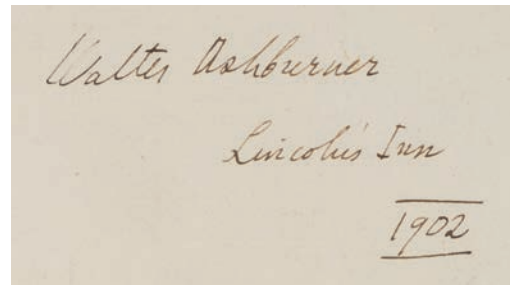 Walter Ashburner
Lincoln's Inn
1902